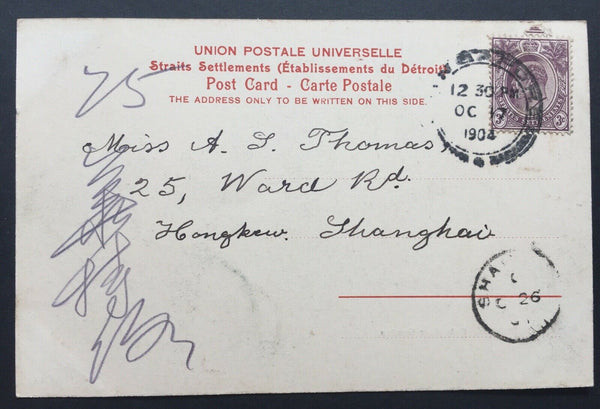 UNION POSTALE UNIVERSELLE
Straits Settlements (Établissements du Détroit)
Post Card - Carte Postale
THE ADDRESS ONLY TO BE WRITTEN ON THIS SIDE.
12 30 PM
OC 17
1904
75
Miss A. L. Thomas,
25, Ward Rd.
Hongkew. Shanghai
SHA
26